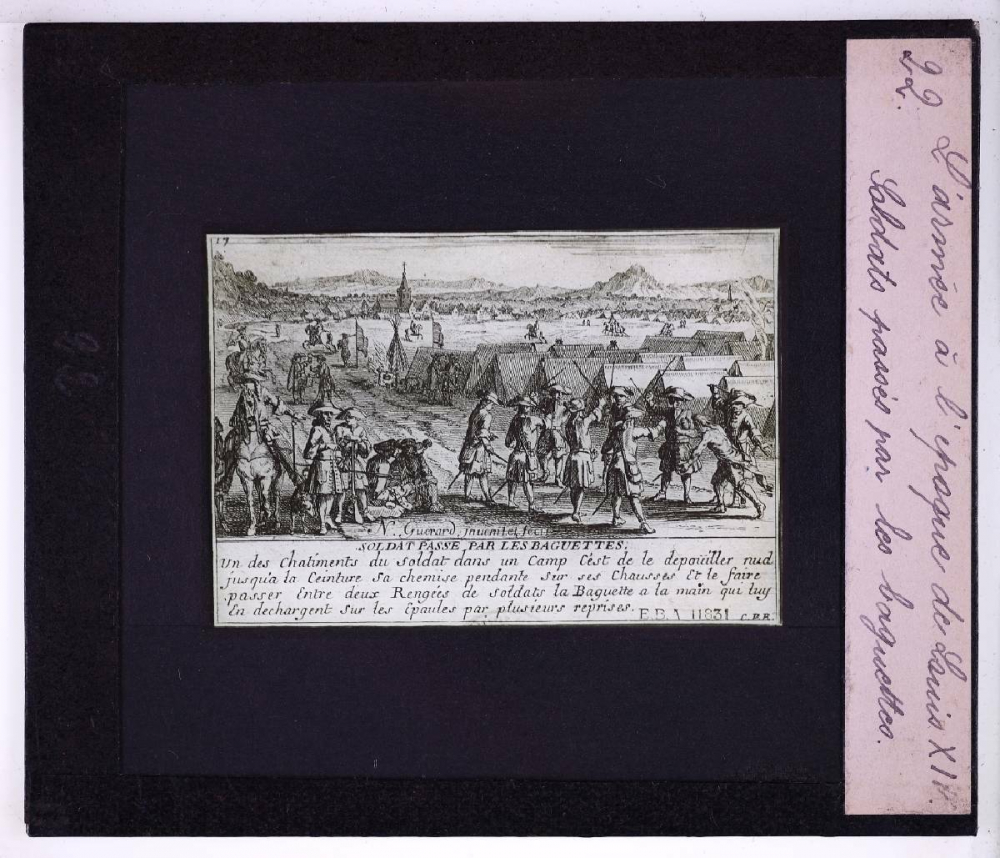 17
N. Guerard inuenit et fecit
SOLDAT PASSE PAR LES BAGUETTES.
Un des Chatiments du Soldat dans un Camp C'est de le depoüiller nud
jusqu'a la Ceinture Sa chemise pendante Sur ses Chausses Et le faire
passer Entre deux Rengées de soldats la Baguette a la main qui luy
En dechargent Sur les Epaules par plusieurs reprises.
E.B.A 11831 C.P.R.
22. L'armée à l'époque de Louis XIV.
Soldats passés par les baguettes.